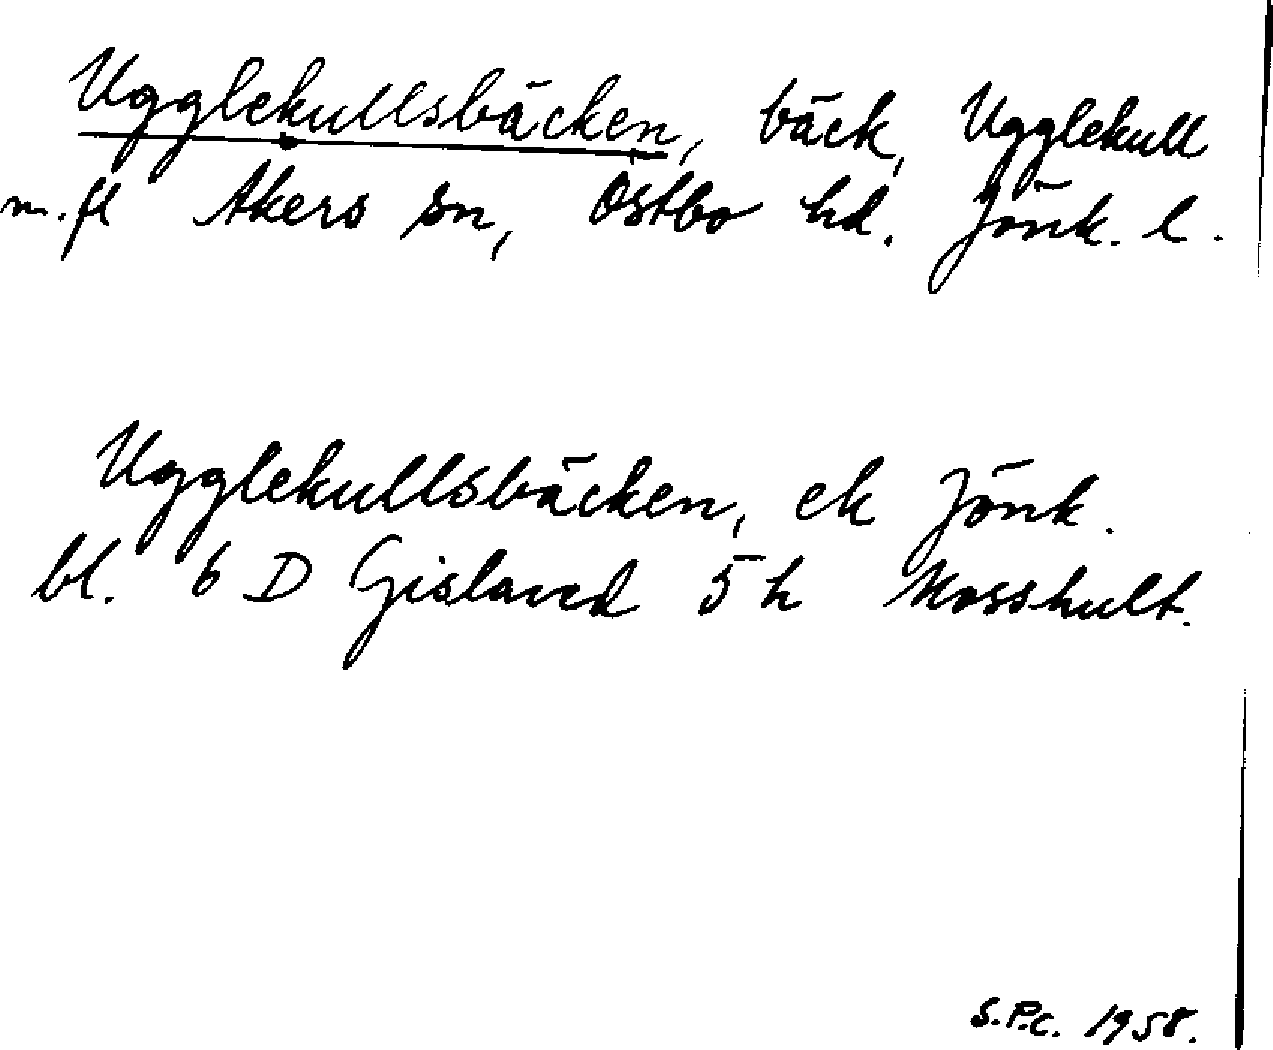 Ugglekullsbäcken, bäck, Ugglekull
m.fl Åkers sn, Östbo hd. Jönk. l.
Ugglekullsbäcken, ek Jönk.
bl. 6 D Gislaved 5 h Mosshult.
S.P.C. 1958.